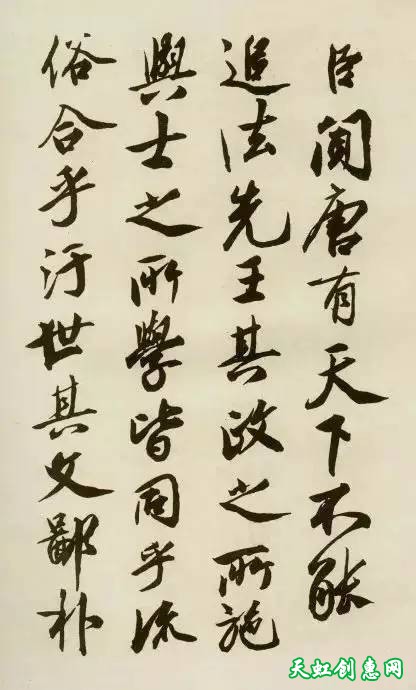 臣聞唐有天下不能
追法先王其政之所施
與士之所學皆同乎流
俗合乎汙世其文鄙朴
天虹创惠网